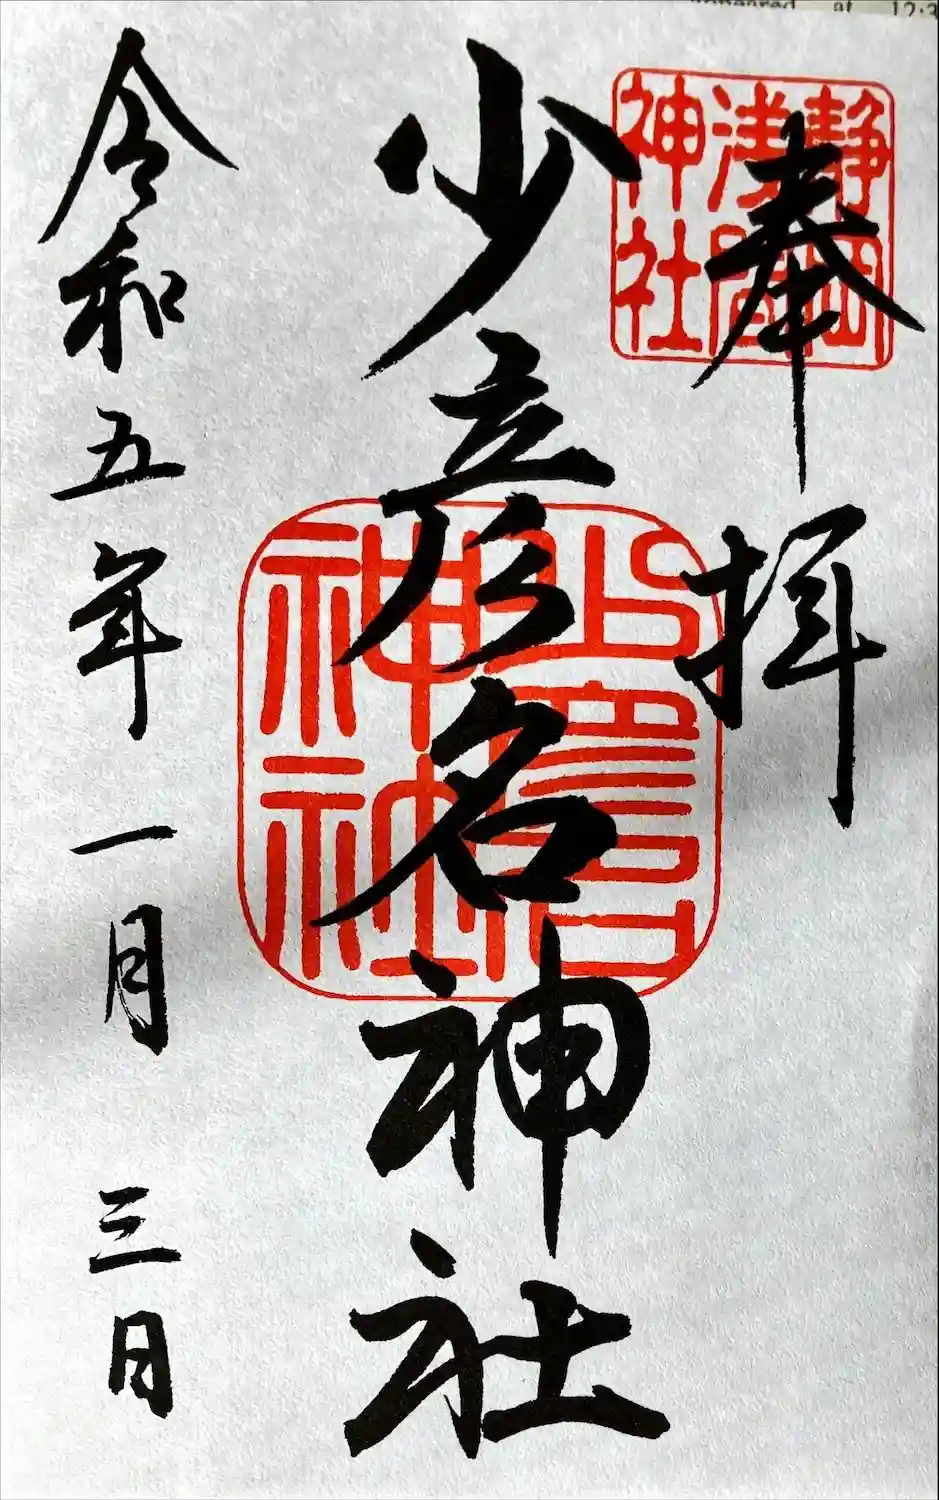 奉拝
静岡
浅間
神社
少彦名神社
少彦名
神社
令和五年一月三日
at 12:3